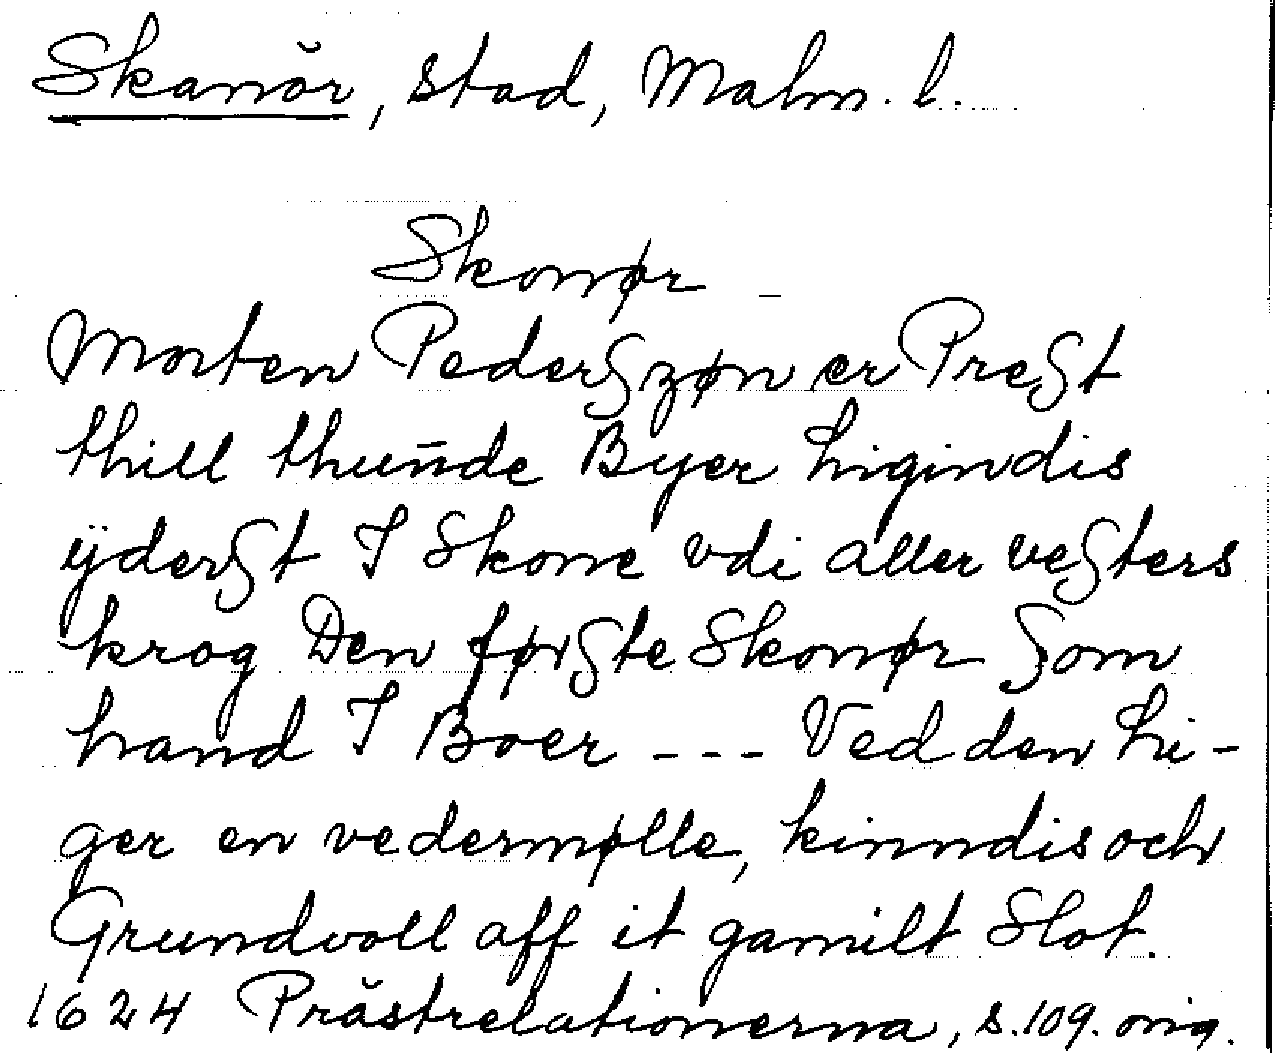 Skanör, stad, Malm. l.
Skonør
Morten Pederszøn er Prest
thill thuñde Byer ligindis
ÿderst I Skone vdi aller vesters
krog Den første Skonør som
hand I Boer --- Ved den li-
ger en vedermølle, kinndis och
Grundvoll aff it gamilt Slot.
1624 Prästrelationerna, s.109. orig.